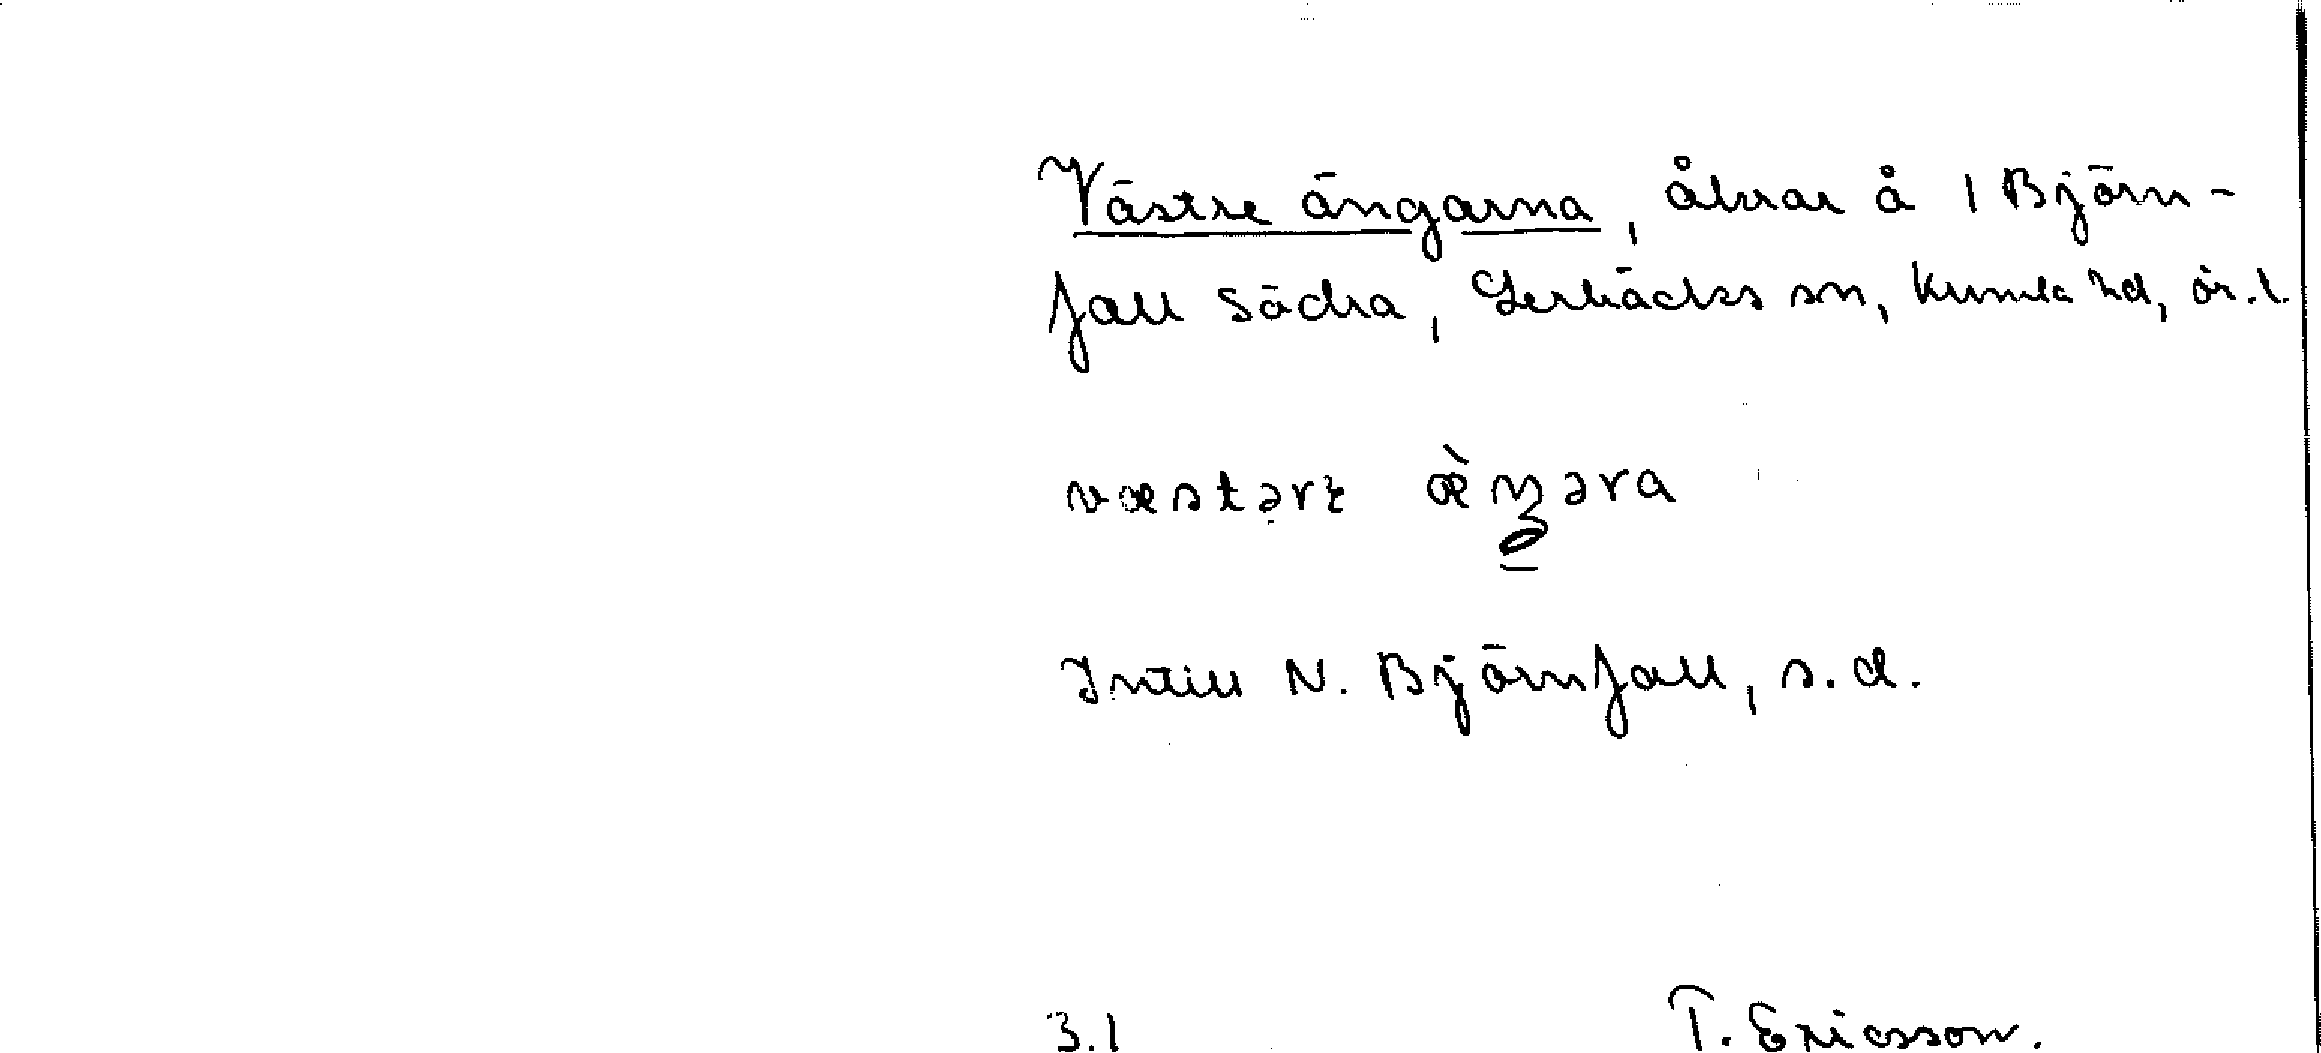 Västre ängarna, åkrar å 1 Björn-
fall Södra, Lerbäcks sn, Kumla hd, ör.l.
væstərɛ æ̀ŋəra
Intill N. Björnfall, s.d.
3.1 T. Ericsson.